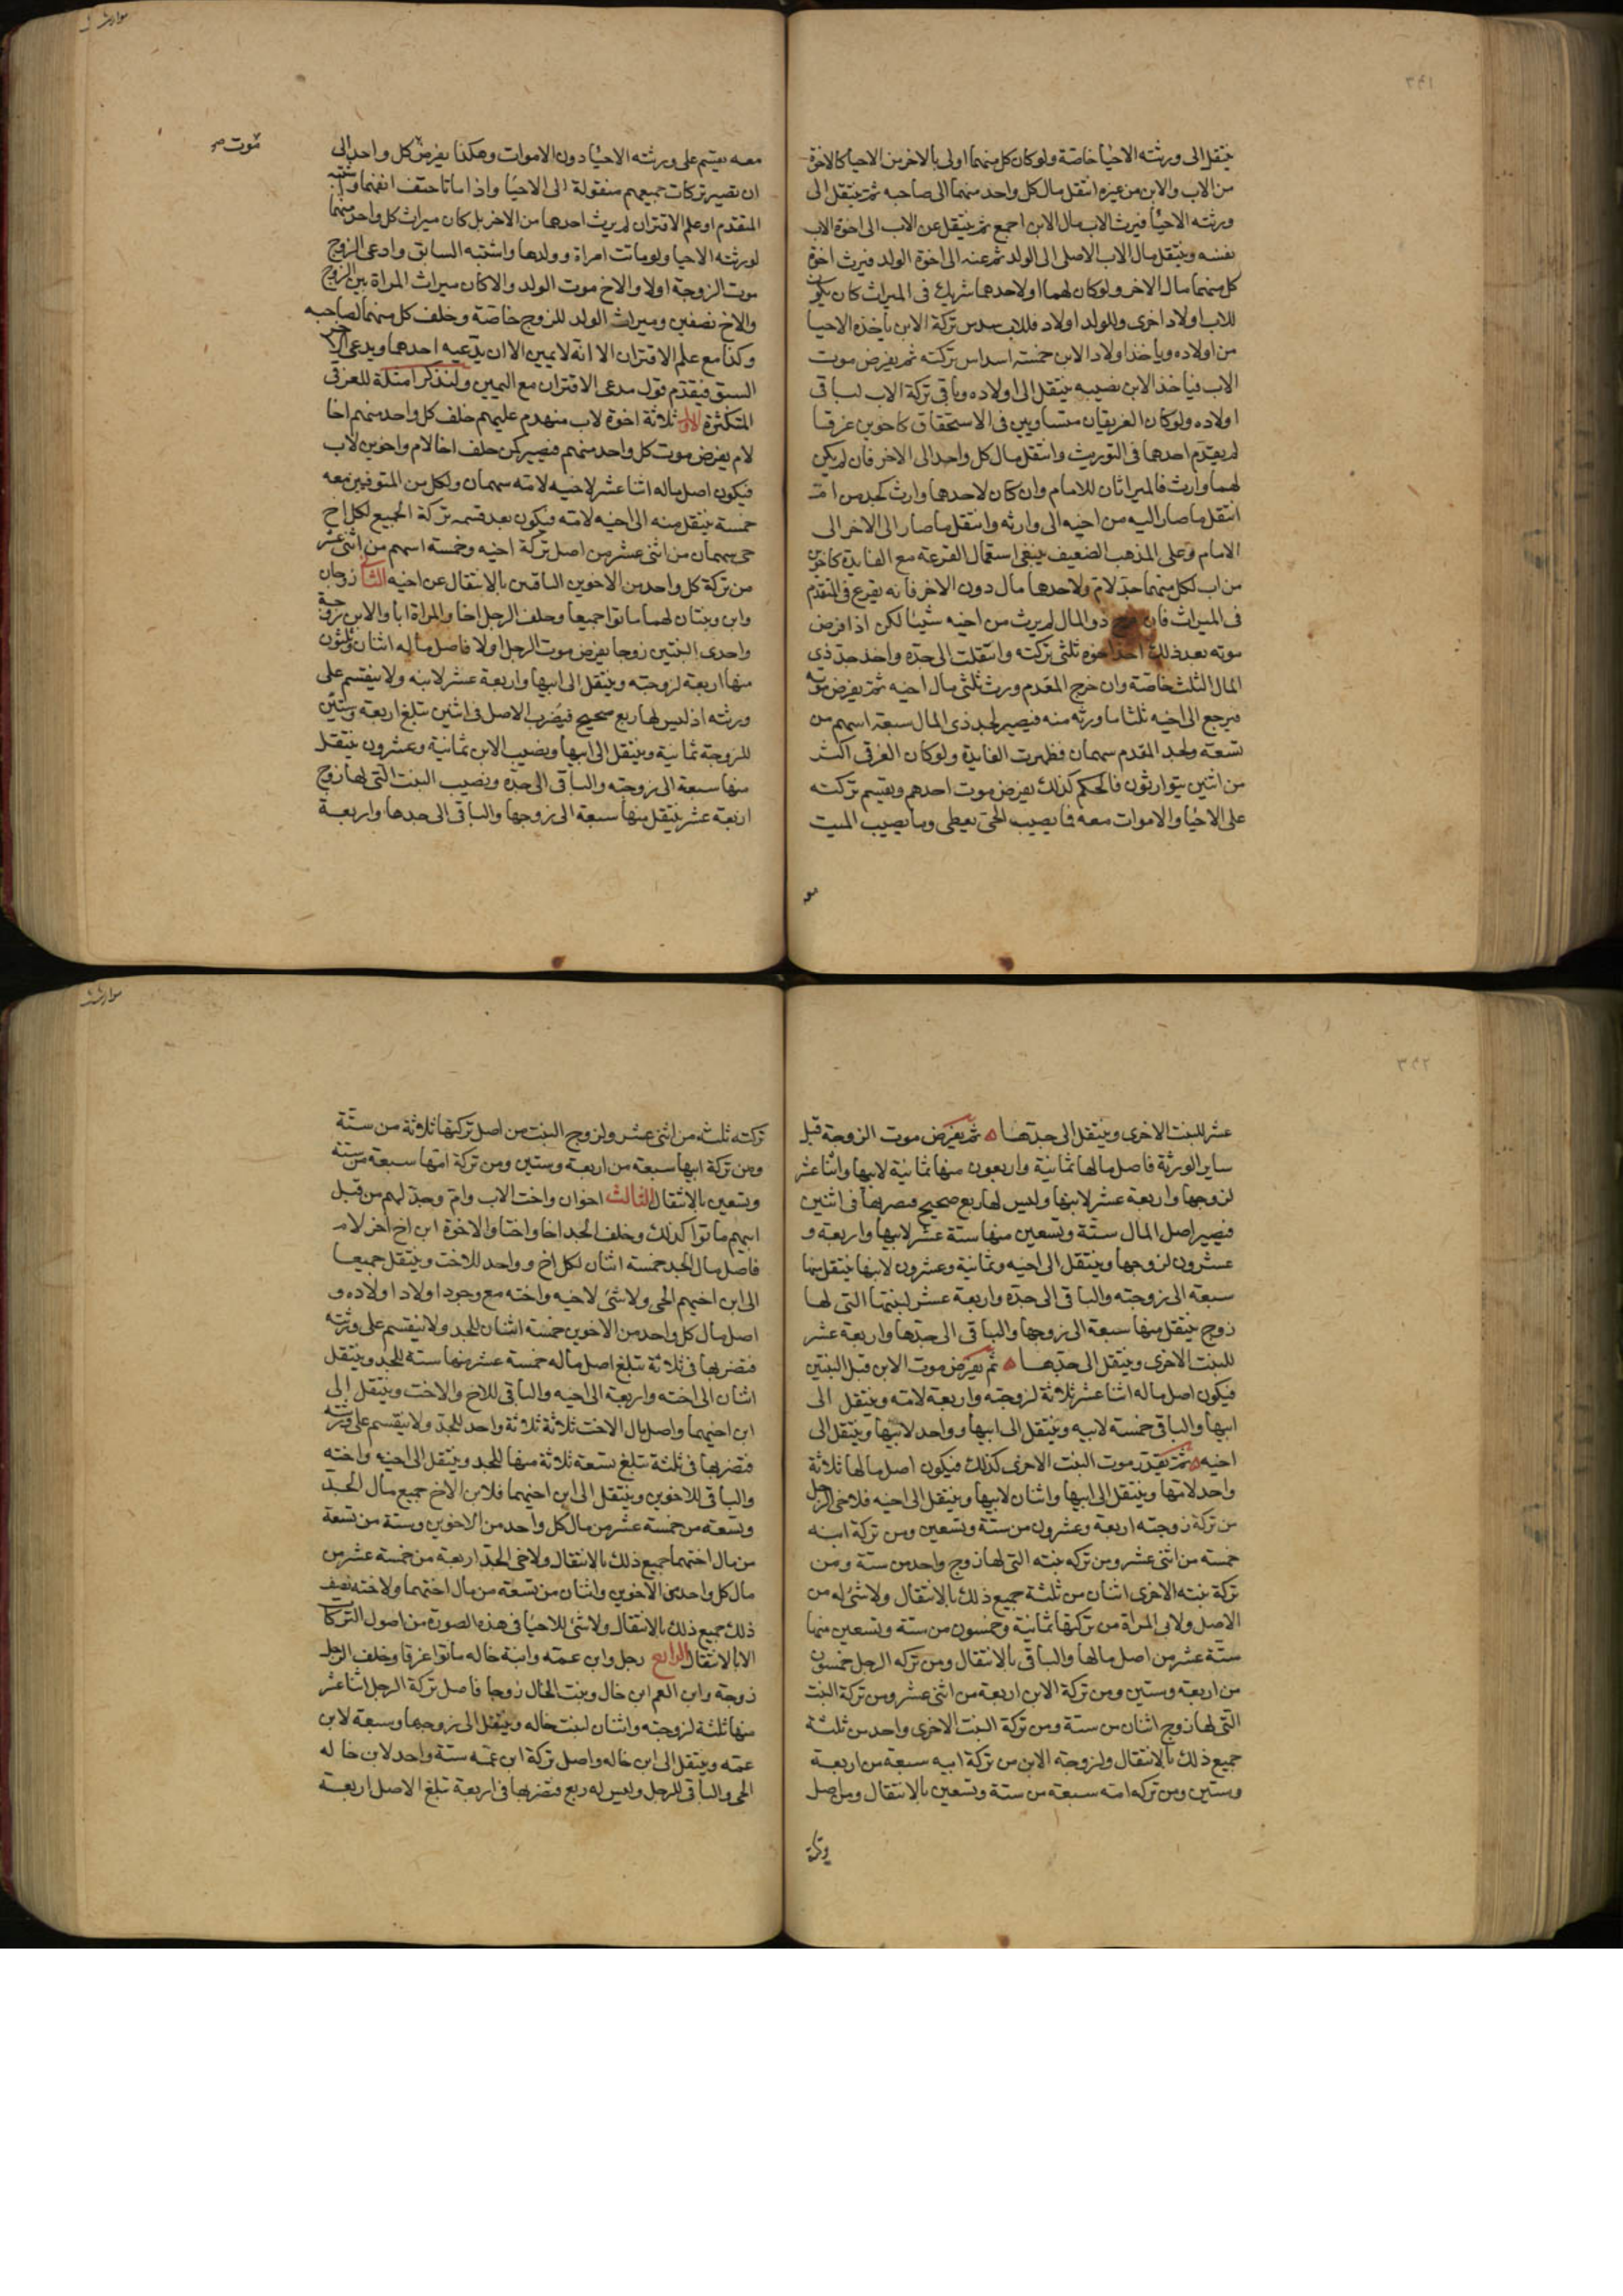 ٣٩١
ينتقل الى ورثته الاحياء خاصة ولو كان كل منهما اولى بالاخر من الاحيا كالاخوة
من الاب والابن من غيره انتقل مال كل واحد منهما الى صاحبه ثم ينتقل الى
ورثته الاحياء فيرث الاب مال الابن اجمع ثم ينتقل عن الاب الى اخوة الاب
نفسه وينتقل مال الاب الاصلى الى الولد ثم عنه الى اخوة الولد فيرث اخوة
كل منهما مال الاخر ولو كان لهما او لاحدهما شريك فى الميراث كان يكون
للاب اولاد اخرى وللولد اولاد فللاب سدس تركة الابن ياخذه الاحيا
من اولاده وياخذ اولاد الابن خمسة اسداس تركته ثم يفرض موت
الاب فياخذ الابن نصيبه ينتقل الى اولاده وباقى تركة الاب لباقى
اولاده ولو كان الغريقان متساويين فى الاستحقاق كاخوين غرقا
لم يقدم احدهما فى التوريث وانتقل مال كل واحد الى الاخر فان لم يكن
لهما وارث فالميراثان للامام وان كان لاحدهما وارث كجد من امه
انتقل ما صار اليه من اخيه الى وارثه وانتقل ما صار الى الاخر الى
الامام وعلى المذهب الضعيف ينبغى استعمال القرعة مع الفايدة كاخوين
من اب لكل منهما جد لام ولاحدهما مال دون الاخر فانه يقرع فى المتقدم
فى الميراث فان خرج ذو المال لم يرث من اخيه شيئا لكن اذا فرض
موته بعد ذلك اخذ اخوه ثلثى تركته وانتقلت الى جده واخذ جد ذى
المال الثلث خاصة وان خرج المقدم ورث ثلثى مال اخيه ثم يفرض موته
فيرجع الى اخيه ثلثا ما ورثه منه فيصير لجد ذى المال سبعة اسهم من
تسعة ولجد المقدم سهمان فظهرت الفايدة ولو كان الغرقى اكثر
من اثنين يتوارثون فالحكم كذلك يفرض موت احدهم ويقسم تركته
على الاحيا والاموات معه فما يصيب الحى يعطى وما يصيب الميت
معه
معه يقسم على ورثته الاحيا دون الاموات وهكذا يفرض كل واحد الى
موت صح
ان تصير تركات جميعهم منقولة الى الاحيا واذا ماتا حتف انفهما واشتبه
المتقدم او علم الاقتران لم يرث احدهما من الاخر بل كان ميراث كل واحد منهما
لورثته الاحيا ولو ماتت امراة وولدها واشتبه السابق وادعى الزوج
موت الزوجة اولا والاخ موت الولد والا كان ميراث المراة بين الزوج
والاخ نصفين وميراث الولد للزوج خاصة وخلف كل منهما لصاحبه
وكذا مع علم الاقتران الا انه لا يمين الا ان يدعيه احدهما ويدعى الاخر
السبق فيقدم قول مدعى الاقتران مع اليمين ولنذكر امثلة للغرقى
المتكثرة الاول ثلاثة اخوة لاب منهدم عليهم خلف كل واحد منهم اخا
لام يفرض موت كل واحد منهم فيصير كمن خلف اخا لام واخوين لاب
فيكون اصل ماله اثنا عشر لاخيه لامه سهمان ولكل من المتوفين معه
خمسة ينتقل منه الى اخيه لامه فيكون بعد قسمة تركة الجميع لكل اخ
حى سهمان من اثنى عشر من اصل تركة اخيه وخمسة اسهم من اثنى عشر
من تركة كل واحد من الاخوين الباقيين بالانتقال عن اخيه الثانى زوجان
وابن وبنتان لهما ماتوا جميعا وخلف الرجل اخا والمراة ابا والابن زوجة
واحدى البنتين زوجا يفرض موت الرجل اولا فاصل ماله اثنان وثلثون
منها اربعة لزوجته وينتقل الى ابيها واربعة عشر لابنه ولا ينقسم على
ورثته اذ ليس لها ربع صحيح فيضرب الاصل فى اثنين تبلغ اربعة وستين
للزوجة ثمانية وينتقل الى ابيها ونصيب الابن ثمانية وعشرون ينتقل
منها سبعة الى زوجته والباقى الى جده ونصيب البنت التى لها زوج
اربعة عشر ينتقل منها سبعة الى زوجها والباقى الى جدها واربعة
٣٩٢
عشر للبنت الاخرى وينتقل الى جدها ثم يفرض موت الزوجة قبل
ساير الورثة فاصل مالها ثمانية واربعون منها ثمانية لابيها واثنا عشر
لزوجها واربعة عشر لابنها وليس لها ربع صحيح فضربها فى اثنين
فيصير اصل المال ستة وتسعين منها ستة عشر لابيها واربعة و
عشرون لزوجها وينتقل الى اخيه وثمانية وعشرون لابنها ينتقل منها
سبعة الى زوجته والباقى الى جده واربعة عشر لبنتها التى لها
زوج ينتقل منها سبعة الى زوجها والباقى الى جدها واربعة عشر
للبنت الاخرى وينتقل الى جدها ثم يفرض موت الابن قبل البنتين
فيكون اصل ماله اثنا عشر ثلاثة لزوجته واربعة لامه وينتقل الى
ابيها والباقى خمسة لابيه وينتقل الى ابيها وواحد لابيها وينتقل الى
اخيه ثم يقدر موت البنت الاخرى كذلك فيكون اصل مالها ثلاثة
واحد لامها وينتقل الى ابيها واثنان لابيها وينتقل الى اخيه فلاخى الرجل
من تركة زوجته اربعة وعشرون من ستة وتسعين ومن تركة ابنه
خمسة من اثنى عشر ومن تركة بنته التى لها زوج واحد من ستة ومن
تركة بنته الاخرى اثنان من ثلثة جميع ذلك بالانتقال ولا شئ له من
الاصل ولابى المراة من تركتها ثمانية وخمسون من ستة وتسعين منها
ستة عشر من اصل مالها والباقى بالانتقال ومن تركة الرجل خمسون
من اربعة وستين ومن تركة الابن اربعة من اثنى عشر ومن تركة البنت
التى لها زوج اثنان من ستة ومن تركة البنت الاخرى واحد من ثلثة
جميع ذلك بالانتقال ولزوجة الابن من تركة ابيه سبعة من اربعة
وستين ومن تركة امه سبعة من ستة وتسعين بالانتقال ومن اصل
تركته ثلثة من اثنى عشر ولزوج البنت من اصل تركتها ثلاثة من ستة
ومن تركة ابيها سبعة من اربعة وستين ومن تركة امها سبعة من ستة
وتسعين بالانتقال الثالث اخوان واخت لاب وام وجد لهم من قبل
ابيهم ماتوا كذلك وخلف الجد اخا واختا والاخوة ابن اخ اخر لام
فاصل مال الجد خمسة اثنان لكل اخ وواحد للاخت وينتقل جميعا
الى ابن اخيهم الحى ولا شئ لاخيه واخته مع وجود اولاد اولاده و
اصل مال كل واحد من الاخوين خمسة اثنان للجد ولا ينقسم على ورثته
فنضربها فى ثلاثة تبلغ اصل ماله خمسة عشر منها ستة للجد وينتقل
اثنان الى اخته واربعة الى اخيه والباقى للاخ والاخت وينتقل الى
ابن اخيهما واصل مال الاخت ثلاثة ثلاثة واحد للجد ولا ينقسم على ورثته
فنضربها فى ثلثة تبلغ تسعة ثلاثة منها للجد وينتقل الى اخيه واخته
والباقى للاخوين وينتقل الى ابن اخيهما فلابن الاخ جميع مال الجد
وتسعة من خمسة عشر من مال كل واحد من الاخوين وستة من تسعة
من مال اختهما جميع ذلك بالانتقال ولاخى الجد اربعة من خمسة عشر من
مال كل واحد من الاخوين واثنان من تسعة من مال اختهما ولاخته نصف
ذلك جميع ذلك بالانتقال ولا شئ للاحيا فى هذه الصورة من اصول التركات
الا بالانتقال الرابع رجل وابن عمه وابنة خاله ماتوا غرقا وخلف الرجل
زوجة وابن العم ابن خال وبنت الخال زوجا فاصل تركة الرجل اثنا عشر
منها ثلثة لزوجته واثنان لبنت خاله وينتقل الى زوجها وسبعة لابن
عمه وينتقل الى ابن خاله واصل تركة ابن عمه ستة واحد لابن خاله
الحى والباقى للرجل وليس له ربع فنضربها فى اربعة تبلغ الاصل اربعة